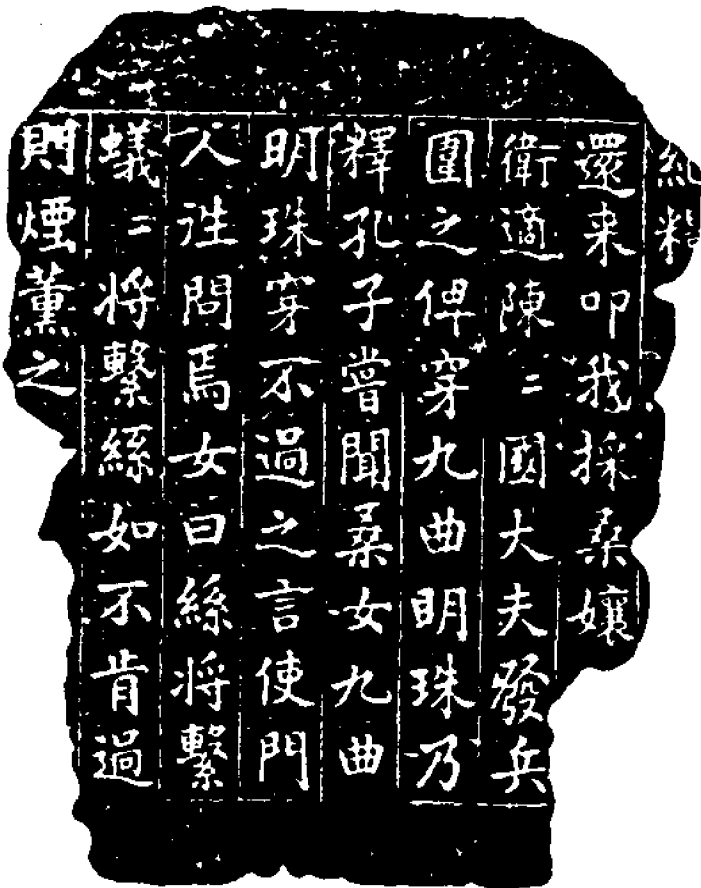 絶粮
還来叩我採桒孃
衛適陳二國大夫發兵
圍之俾穿九曲明珠乃
釋孔子嘗聞桒女九曲
明珠穿不過之言使門
人徃問焉女曰絲将繫
蟻二将繫絲如不肯過
則煙薰之